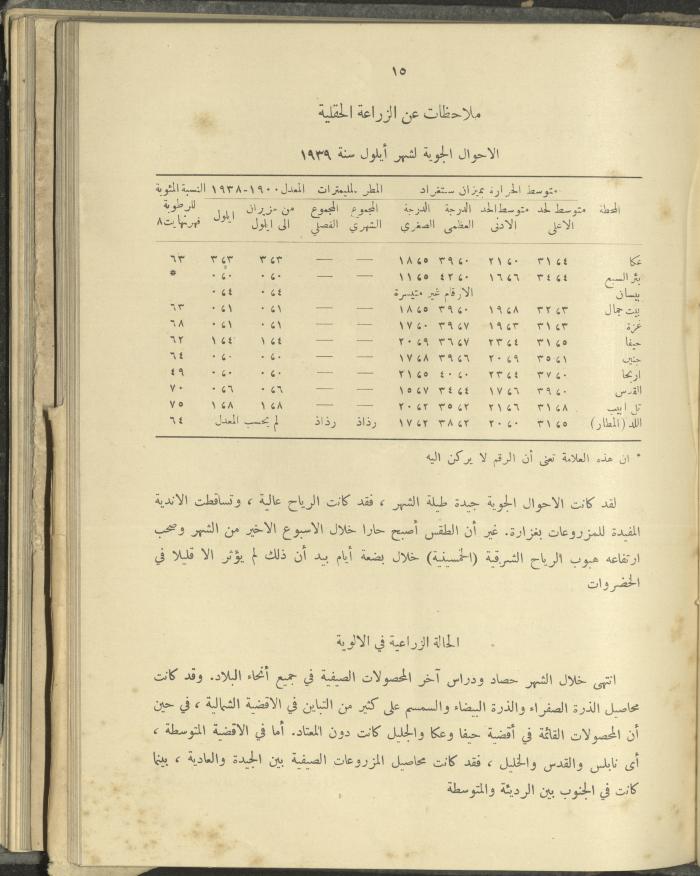 ١٥
ملاحظات عن الزراعة الحقلية
الاحوال الجوية لشهر أيلول سنة ١٩٣٩
المحطة متوسط الحرارة بميزان سنتغراد المطر بالمليمترات المعدل ١٩٠٠-١٩٣٨ النسبة المئوية
متوسط لحد متوسط الحد الدرجة الدرجة المجموع المجموع من حزيران ايلول للرطوبة
الاعلى الادنى العظمى الصغرى الشهري الفصلي الى ايلول فهرنهايت ٨
عكا ٣١،٤ ٢١،٠ ٣٩،٠ ١٨،٥ — — ٣،٣ ٣،٣ ٦٣
بئر السبع ٣٤،٤ ١٦،٦ ٤٢،٠ ١١،٥ — — ٠،٠ ٠،٠ *
بيسان الارقام غير متيسرة ٠،٤ ٠،٤
بيت جمال ٣٢،٣ ١٩،٨ ٣٩،٠ ١٨،٥ — — ٠،١ ٠،١ ٦٣
غزة ٣١،٣ ١٩،٣ ٣٩،٧ ١٧،٠ — — ٠،١ ٠،١ ٦٨
حيفا ٣١،٥ ٢٣،٤ ٣٦،٧ ٢٠،٩ — — ١،٤ ١،٤ ٦٢
جنين ٣٥،١ ٢٠،٩ ٣٩،٦ ١٧،٨ — — ٠،٠ ٠،٠ ٦٤
اريحا ٣٧،٠ ٢٣،٤ ٤٠،٠ ٢١،٥ — — ٠،٠ ٠،٠ ٤٩
القدس ٣٩،٠ ١٧،٦ ٣٤،٤ ١٥،٧ — — ٠،٦ ٠،٦ ٧٠
تل ابيب ٣١،٨ ٢١،٦ ٣٥،٢ ٢٠،٢ — — ١،٨ ١،٨ ٧٥
اللد (المطار) ٣١،٥ ٢٠،٠ ٣٨،٢ ١٧،٢ رذاذ رذاذ لم يحسب المعدل ٦٤
* ان هذه العلامة تعني أن الرقم لا يركن اليه
لقد كانت الاحوال الجوية جيدة طيلة الشهر ، فقد كانت الرياح عالية ، وتساقطت الاندية
المفيدة للمزروعات بغزارة. غير أن الطقس أصبح حارا خلال الاسبوع الاخير من الشهر وصحب
ارتفاعه هبوب الرياح الشرقية (الخمسينية) خلال بضعة أيام بيد أن ذلك لم يؤثر الا قليلا في
الخضروات
الحالة الزراعية في الالوية
انتهى خلال الشهر حصاد ودراس آخر المحصولات الصيفية في جميع أنحاء البلاد. وقد كانت
محاصيل الذرة الصفراء والذرة البيضاء والسمسم على كثير من التباين في الاقضية الشمالية ، في حين
أن المحصولات القائمة في أقضية حيفا وعكا والجليل كانت دون المعتاد. أما في الاقضية المتوسطة ،
أى نابلس والقدس والخليل ، فقد كانت محاصيل المزروعات الصيفية بين الجيدة والعادية ، بينما
كانت في الجنوب بين الرديئة والمتوسطة